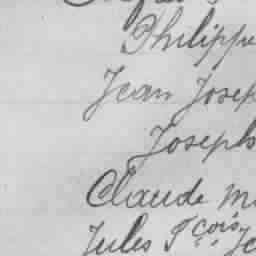 Philippe
Jean Josep
Joseph
Claude M
Jules Fçois Je